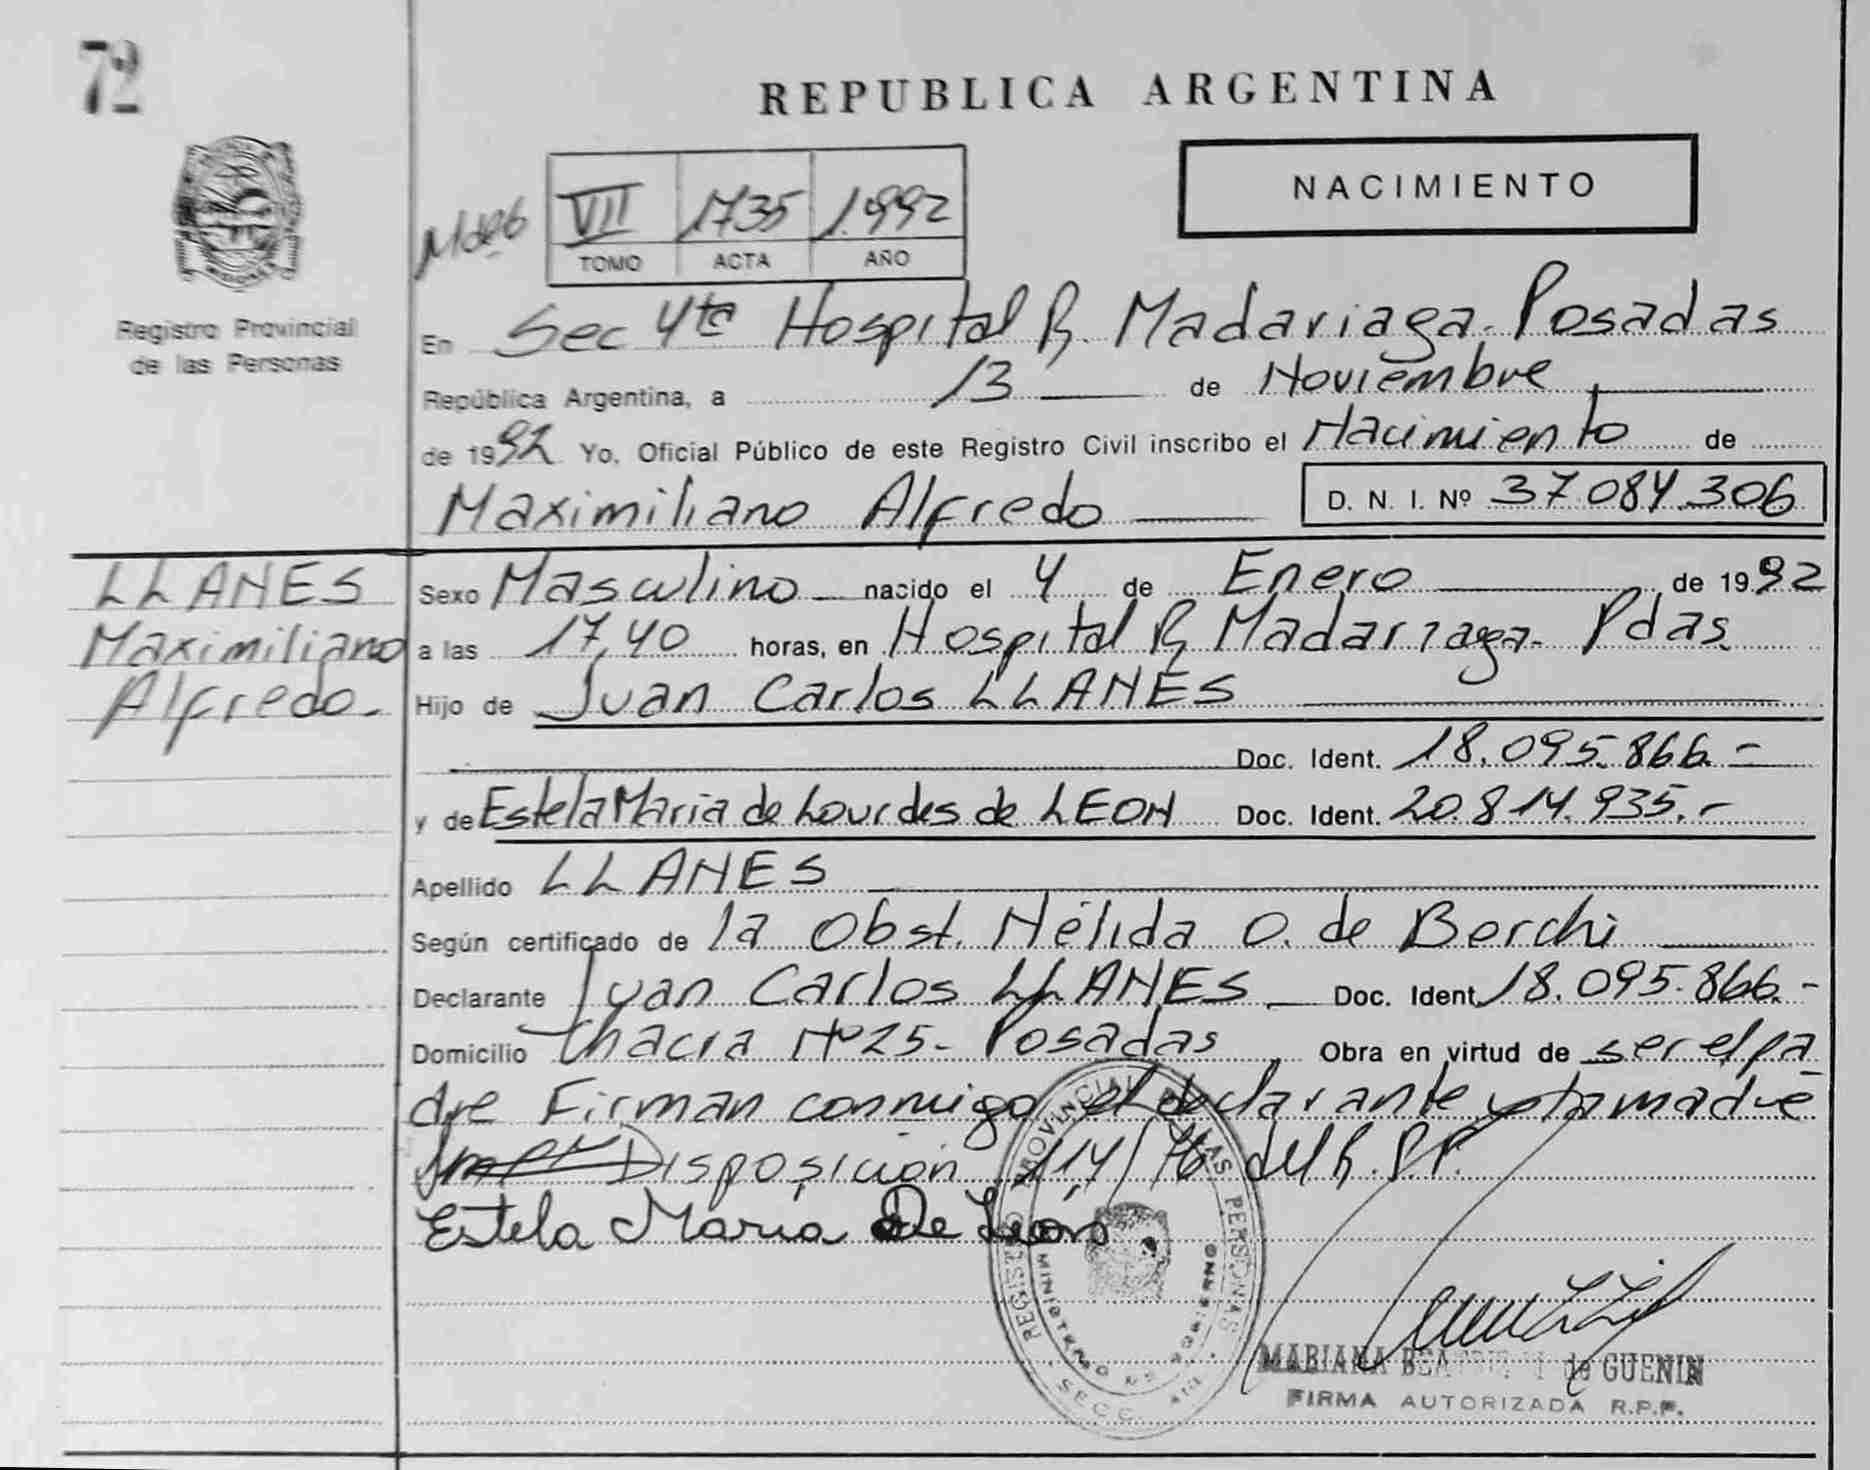 72
REPUBLICA ARGENTINA
NACIMIENTO
VII 1735 1.992
TOMO ACTA AÑO
Registro Provincial
de las Personas
En Sec 4ta Hospital R. Madariaga. Posadas
República Argentina, a 13 de Noviembre
de 1992 Yo, Oficial Público de este Registro Civil inscribo el Nacimiento de
Maximiliano Alfredo D. N. I. Nº 37.084.306
LLANES
Maximiliano
Alfredo.
Sexo Masculino nacido el 4 de Enero de 1992
a las 17,40 horas, en Hospital R, Madariaga. Pdas.
Hijo de Juan Carlos LLANES
Doc. Ident. 18.095.866.-
y de Estela Maria de Lourdes de LEON Doc. Ident. 20.814.935.-
Apellido LLANES
Según certificado de la Obst. Nélida O. de Borchi
Declarante Juan Carlos LLANES Doc. Ident. 18.095.866.-
Domicilio Chacra Nº 25- Posadas Obra en virtud de ser el pa
dre Firman conmigo el declarante y la madre
Disposición 114/76 del R.P.P.
Estela María De León
REGISTRO PROVINCIAL DE LAS PERSONAS
MINISTERIO DE GOBIERNO
SECC.
MARIANA de GUENIN
FIRMA AUTORIZADA R.P.P.